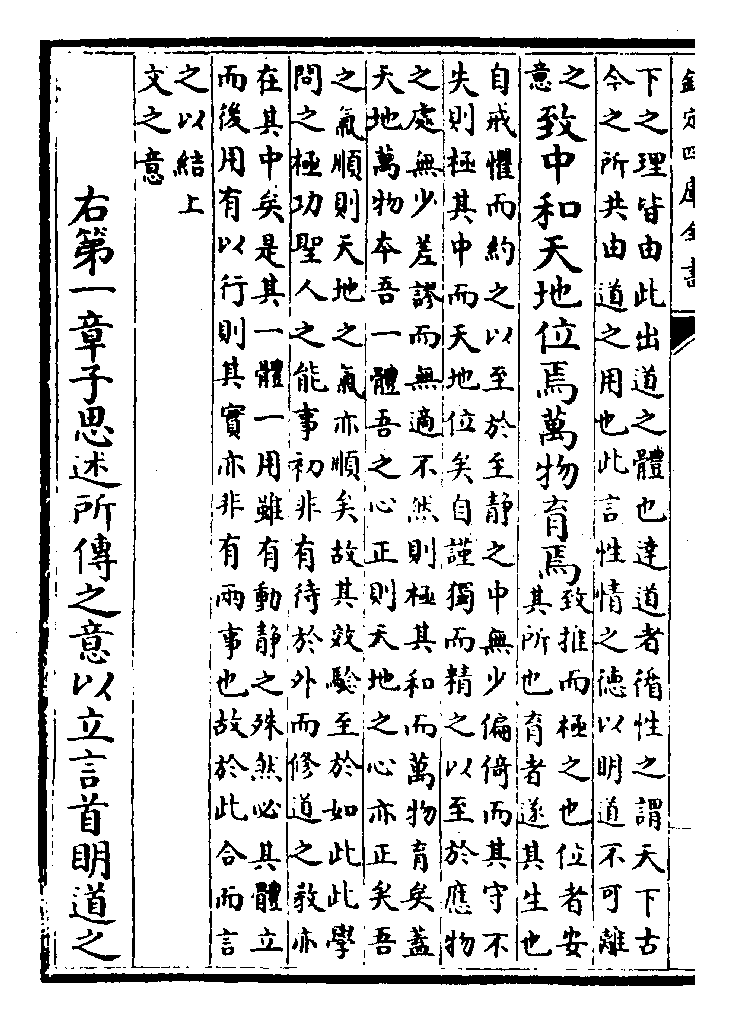 欽定四庫全書
下之理皆由此出道之體也達道者循性之謂天下古
今之所共由道之用也此言性情之德以明道不可離
之
意
致中和天地位焉萬物育焉
致推而極之也位者安
其所也育者遂其生也
自戒懼而約之以至於至静之中無少偏倚而其守不
失則極其中而天地位矣自謹獨而精之以至於應物
之處無少差謬而無適不然則極其和而萬物育矣葢
天地萬物本吾一體吾之心正則天地之心亦正矣吾
之氣順則天地之氣亦順矣故其效驗至於如此此學
問之極功聖人之能事初非有待於外而修道之教亦
在其中矣是其一體一用雖有動静之殊然必其體立
而後用有以行則其實亦非有兩事也故於此合而言
之以結上
文之意
右第一章子思述所傳之意以立言首明道之